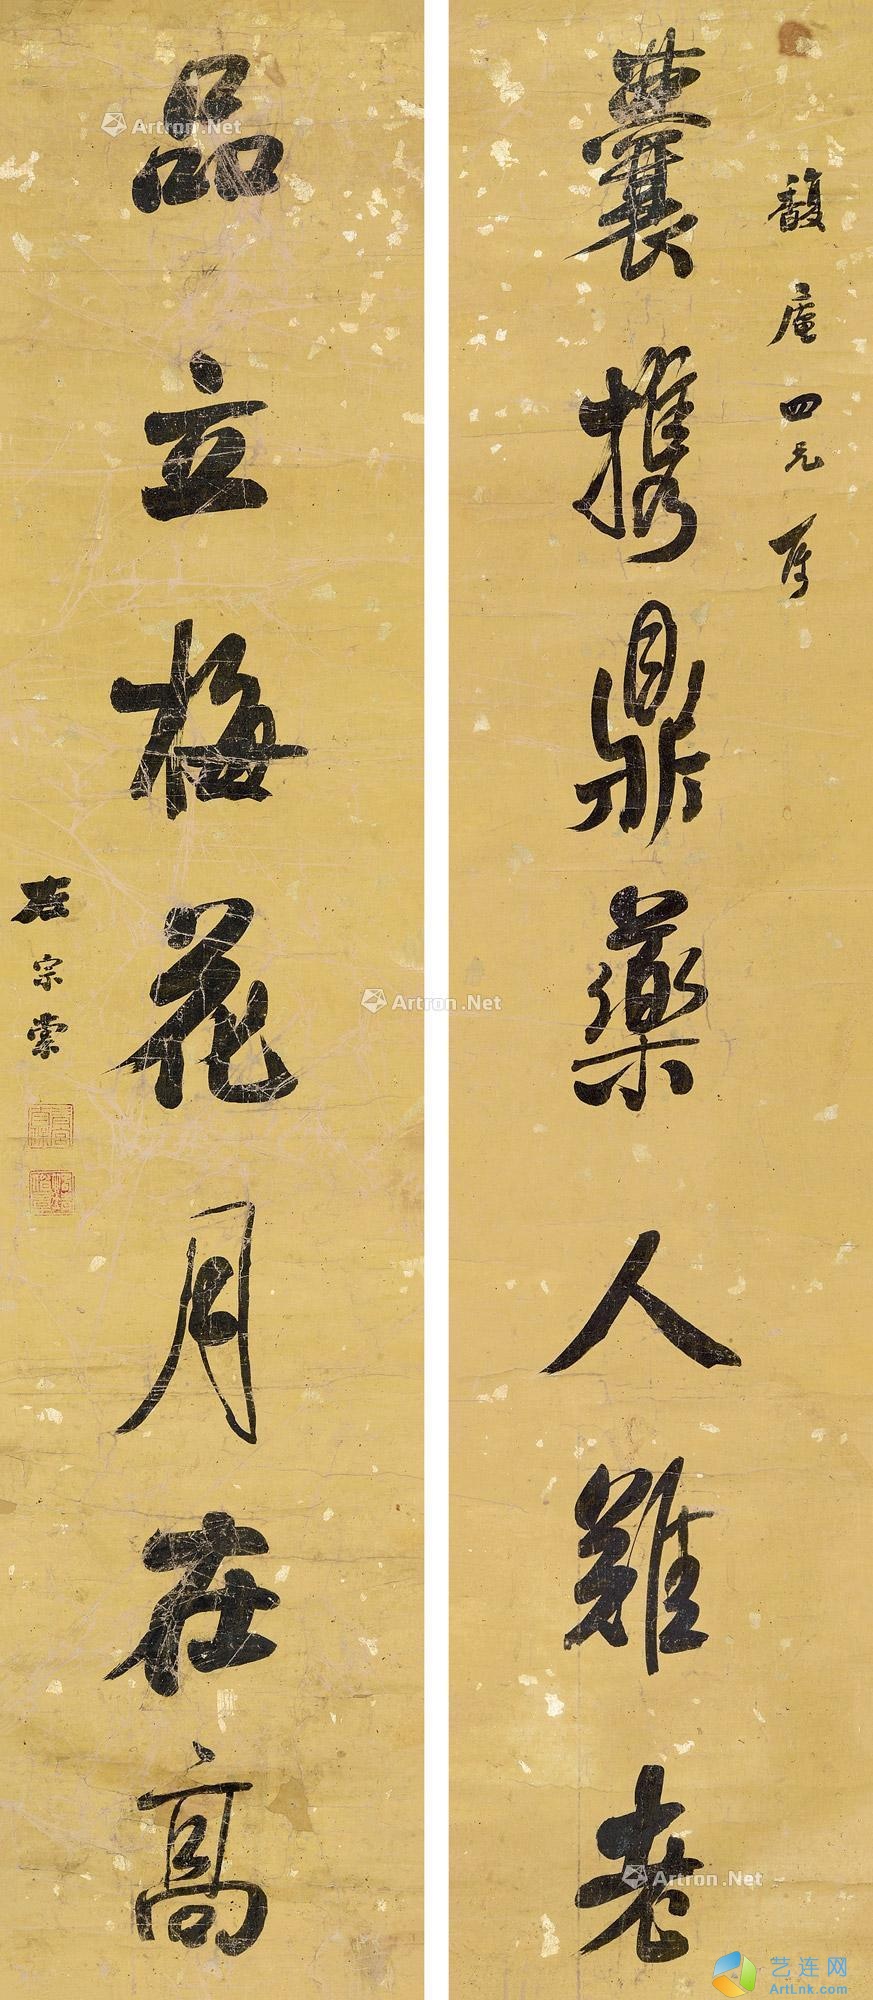 馥庵四兄屬
囊攜鼎藥人難老
品立梅花月在高
左宗棠
Artron.Net
Artron.Net
Artron.Net
Artron.Net
艺连网
ArtLnk.com